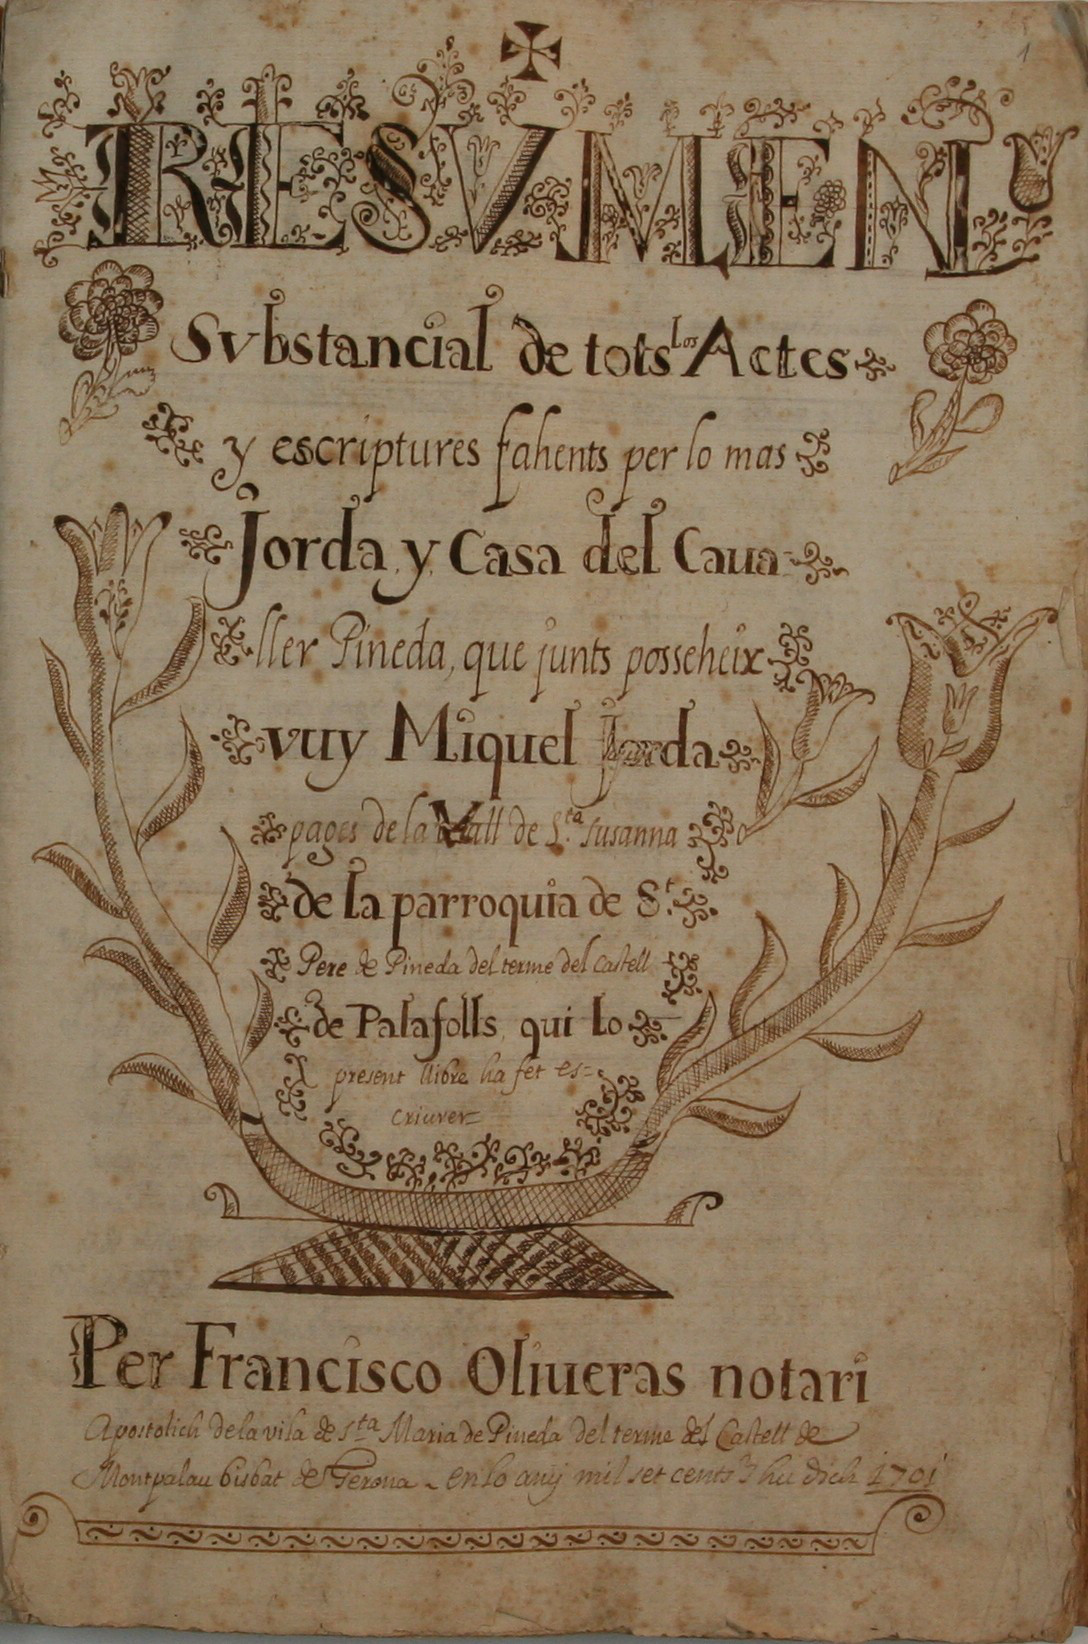 1
RESVMEN
Svbstancial de tots los Actes
y escriptures fahents per lo mas
Jorda y Casa del Caua-
ller Pineda, que junts posseheix
vuy Miquel Jorda
pages de la Vall de S.ta Susanna
de la parroquia de S.t
Pere de Pineda del terme del Castell
de Palafolls, qui lo
present llibre ha fet es=
criurer
Per Francisco Oliueras notari
Apostolich de la vila de S.ta Maria de Pineda del terme del Castell de
Montpalau bisbat de Gerona - en lo any mil set cents y hu dich 1701